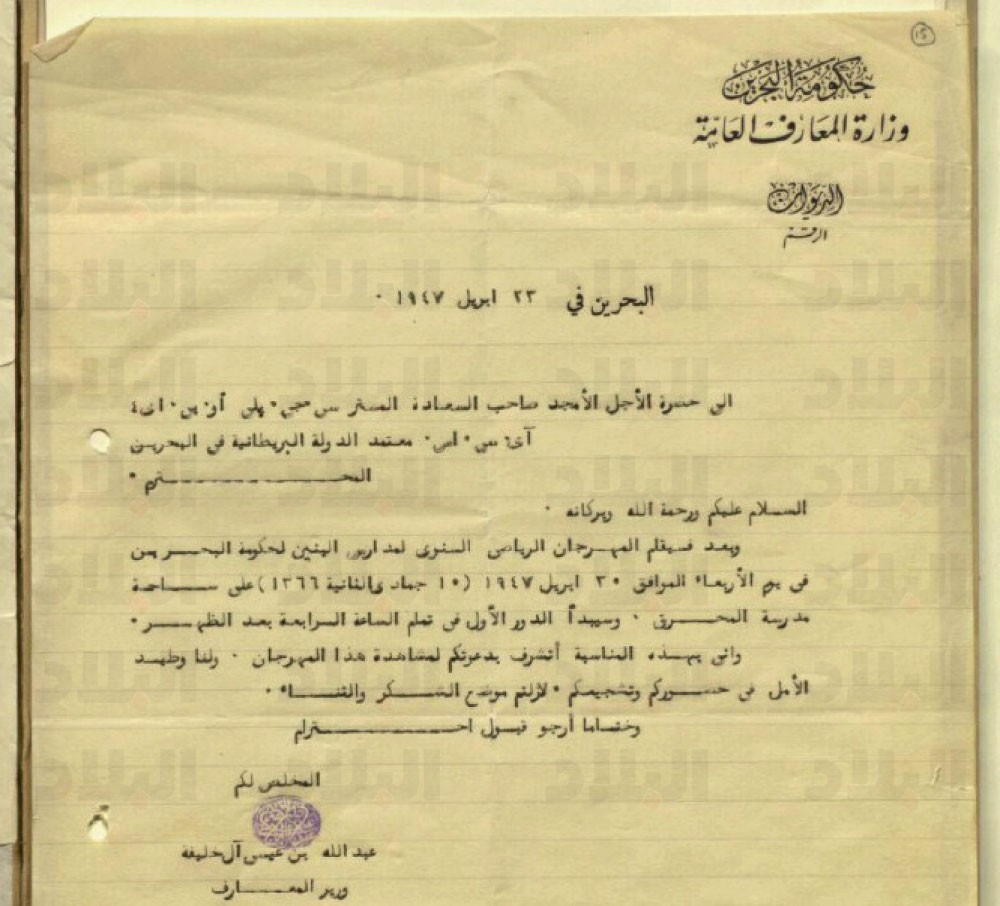 ١٥
حكومة البحرين
وزارة المعارف العامة
الديوان
الرقم
البحرين في ٢٣ ابريل ١٩٤٧ ٠
الى حضرة الأجل الأمجد صاحب السعادة المستر سي٠ جي٠ پلي أو٠ بي٠ اى٤
آى٠ سي٠ اس٠ معتمد الدولة البريطانية في البحرين
المحـــــــــترم ٠
السلام عليكم ورحمة الله وبركاته ٠
وبعد فسيقام المهرجان الرياضي السنوى لمدارس البنين لحكومة البحرين
في يوم الأربعاء الموافق ٣٠ ابريل ١٩٤٧ (١٠ جمادى الثانية ١٣٦٦) على ساحة
مدرسة المحرق ٠ وسيبدأ الدور الأول في تمام الساعة الرابعة بعد الظهر ٠
واني بهذه المناسبة أتشرف بدعوتكم لمشاهدة هذا المهرجان ٠ ولنا وطيد
الأمل في حضوركم وتشجيعكم ٠ لازلتم موضع الشكر والثناء ٠
وختاما أرجو قبول احـــــــترام
المخلص لكم
عبد الله بن عيسى آل خليفة
وزير المعـــارف
البلاد